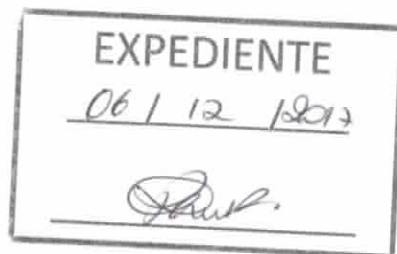 EXPEDIENTE
06 / 12 /2017